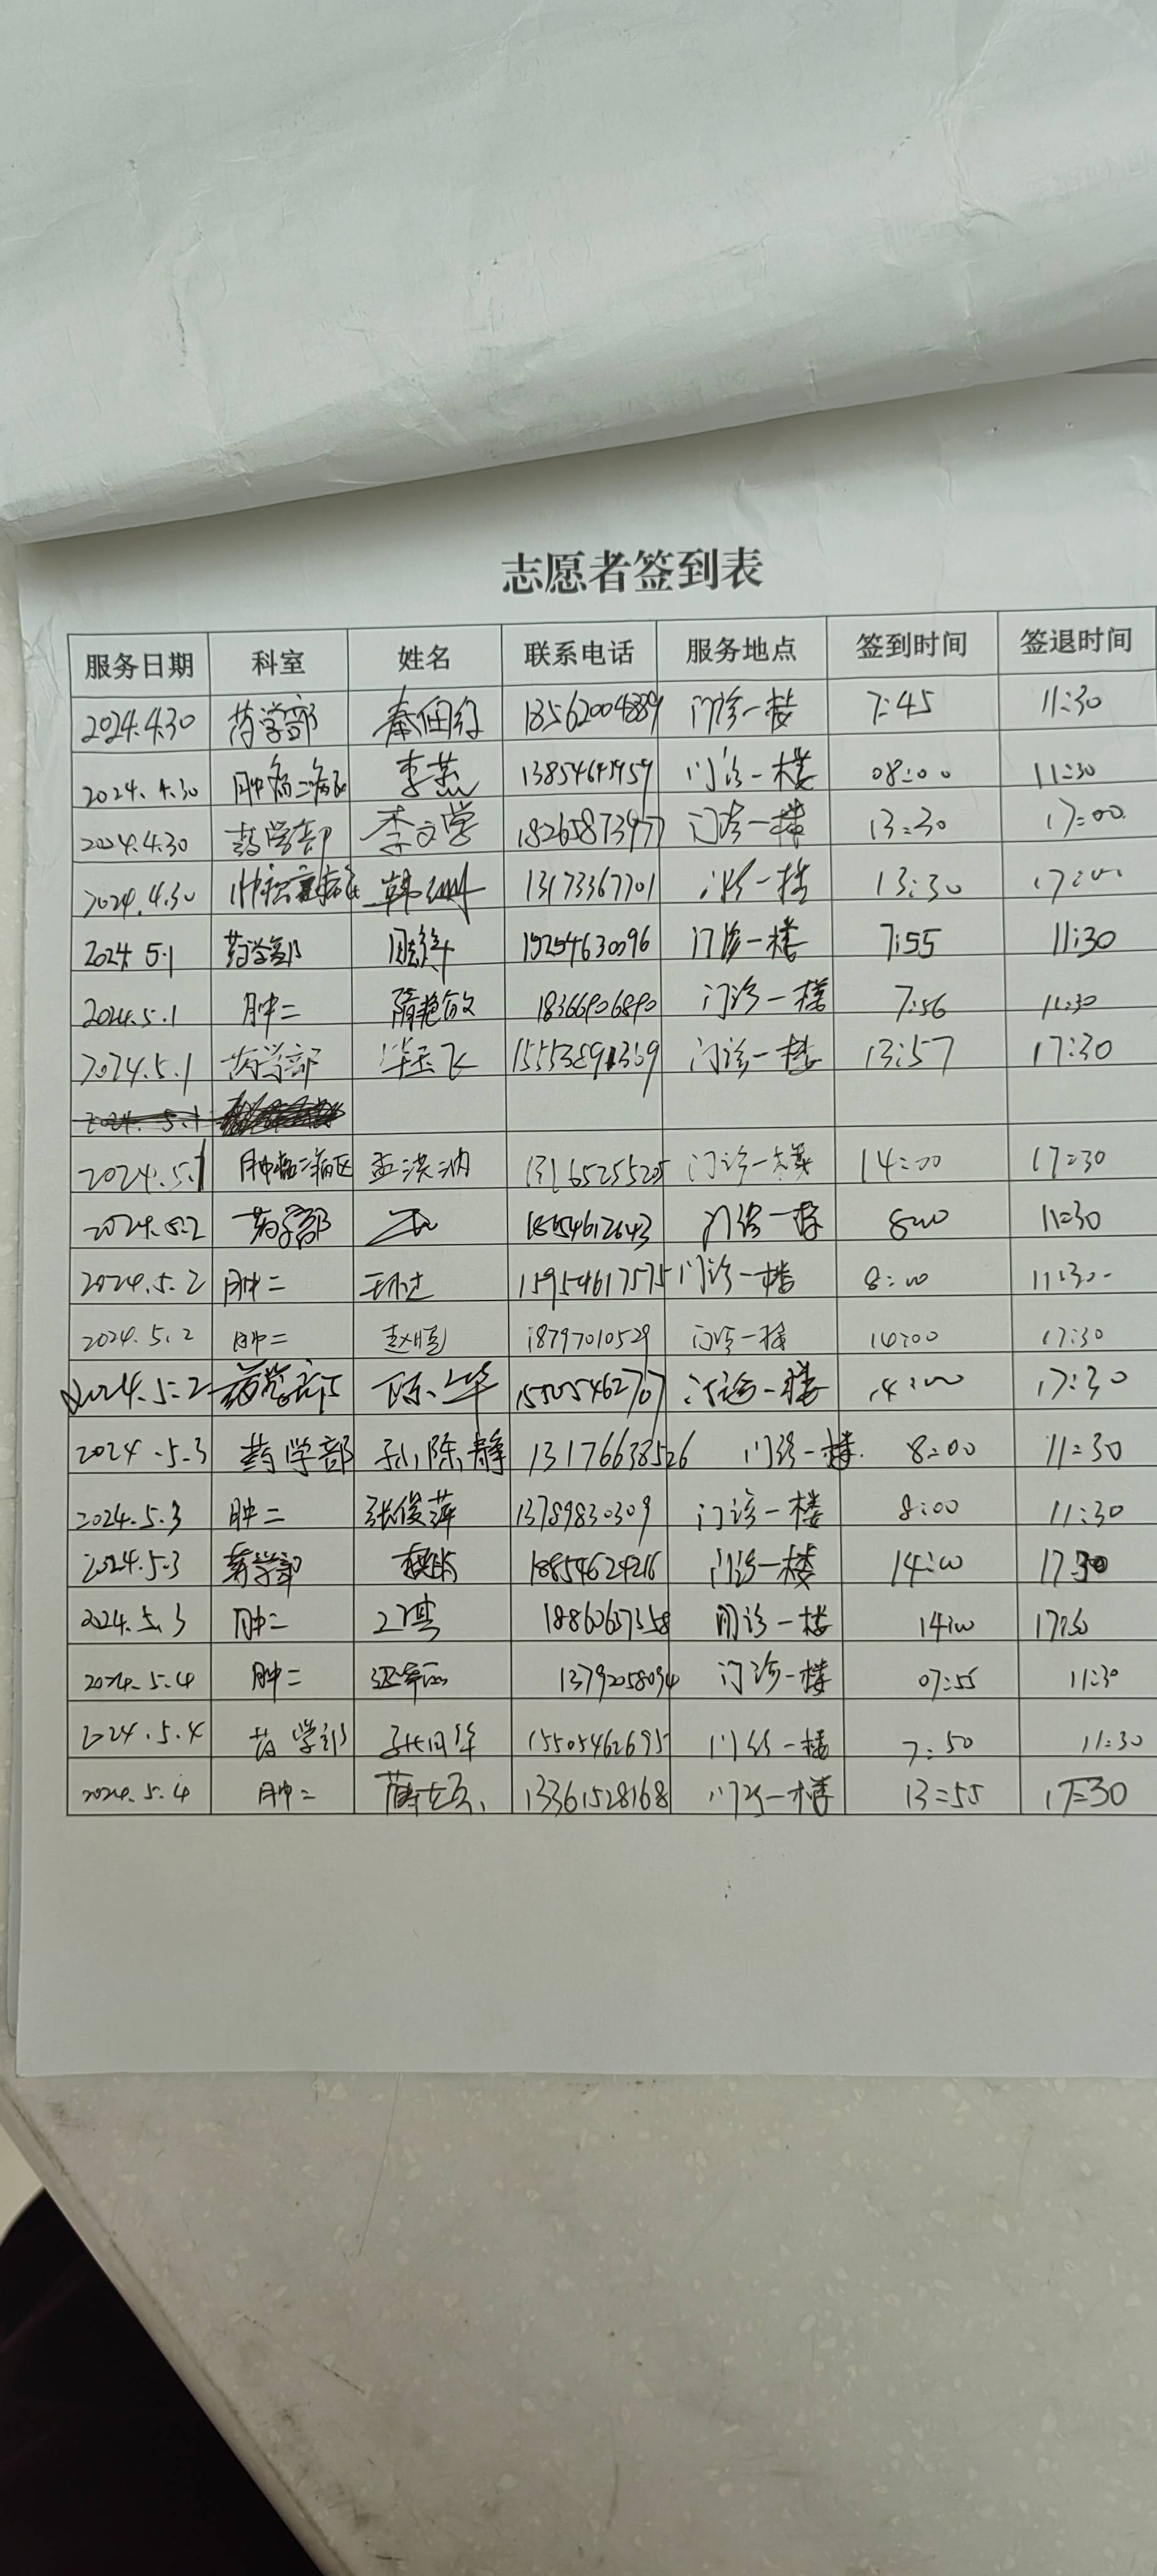 志愿者签到表
服务日期 科室 姓名 联系电话 服务地点 签到时间 签退时间
2024.4.30 药学部 13562004889 门诊一楼 7:45 11:30
2024.4.30 肿瘤二病区 李燕 门诊一楼 08:00 11:30
2024.4.30 药学部 李文学 18265873977 门诊一楼 13:30 17:00
2024.4.30 韩 13173367701 门诊一楼 13:30 17:00
2024.5.1 药学部 15254630096 门诊一楼 7:55 11:30
2024.5.1 肿二 隋艳敏 18366906890 门诊一楼 7:56 11:30
2024.5.1 药学部 毕玉飞 15553891369 门诊一楼 13:57 17:30
2024.5.1
2024.5.1 肿瘤二病区 孟洪 13165255205 门诊一楼 14:00 17:30
2024.5.2 药学部 18654612643 门诊一楼 8:00 11:30
2024.5.2 肿二 15954617575 门诊一楼 8:00 11:30
2024.5.2 肿二 赵 18797010529 门诊一楼 14:00 17:30
2024.5.2 药学部 陈 15505462707 门诊一楼 14:00 17:30
2024.5.3 药学部 孙陈静 13176638526 门诊一楼. 8:00 11:30
2024.5.3 肿二 张俊萍 13789830309 门诊一楼 8:00 11:30
2024.5.3 药学部 18854624216 门诊一楼 14:00 17:30
2024.5.3 肿二 18860607358 门诊一楼 14:00 17:30
2024.5.4 肿二 13792058094 门诊一楼 07:55 11:30
2024.5.4 药学部 15505462695 门诊一楼 7:50 11:30
2024.5.4 肿二 13361528168 门诊一楼 13:55 17:30